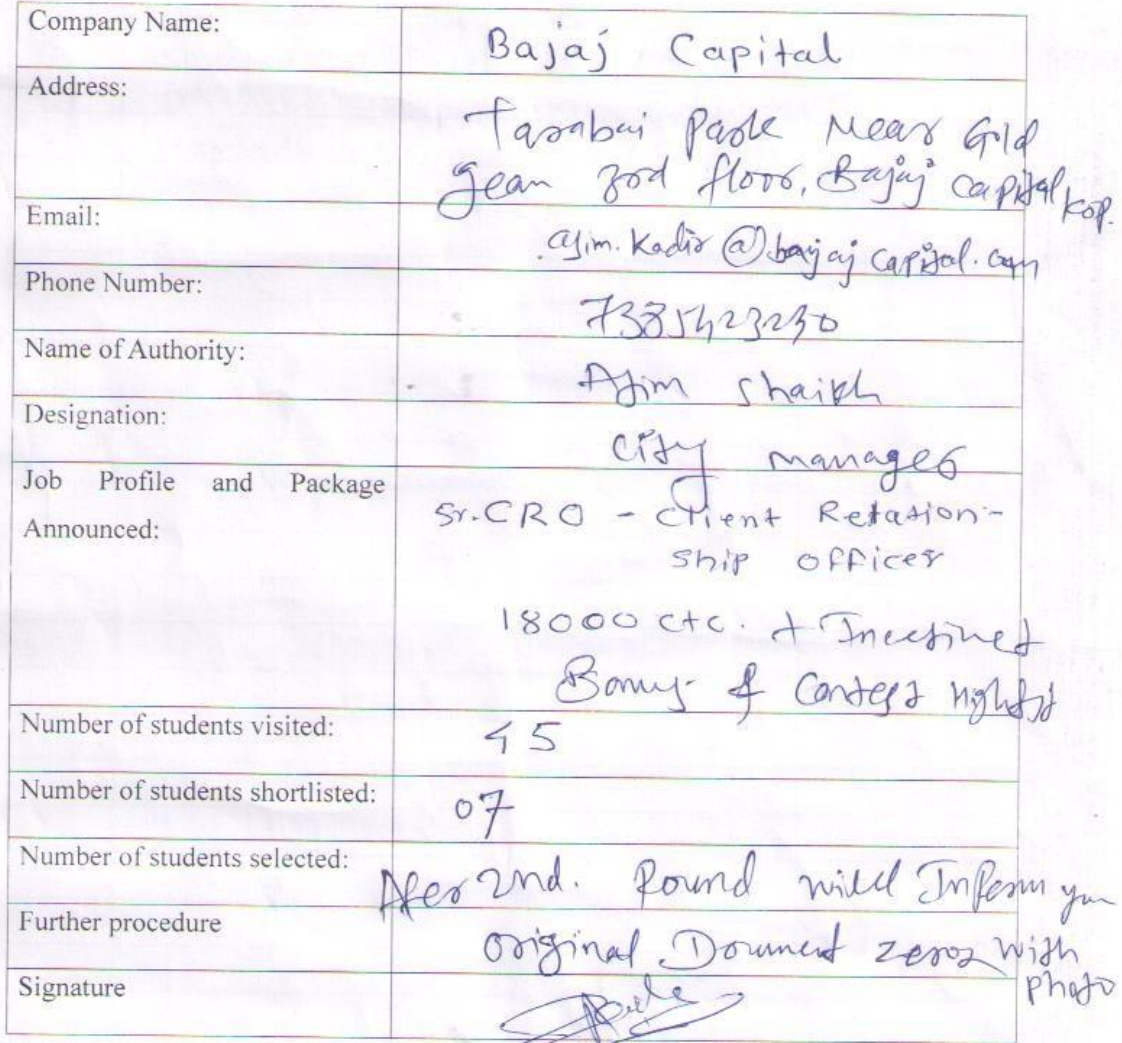 Company Name: Bajaj Capital
Address: Tarabai Park Near Gold
gean 3rd floor, Bajaj Capital Kop.
Email: ajim.Kadir@bajajcapital.com
Phone Number: 7385423230
Name of Authority: Ajim Shaikh
Designation: City manager
Job Profile and Package
Announced:
Sr.CRO - Client Relation-
ship officer
18000 ctc. + Incentives
Bonus & Contest
Number of students visited: 45
Number of students shortlisted: 07
Number of students selected: After 2nd. Round will Inform you
Further procedure original Document zerox with
photo
Signature